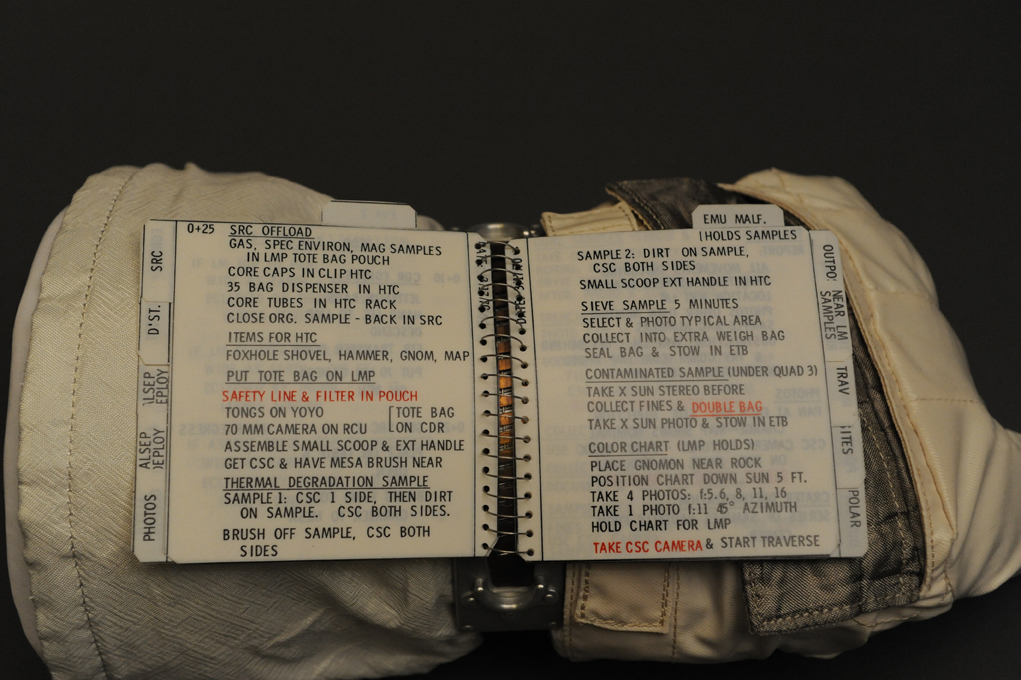 0+25 SRC OFFLOAD
GAS, SPEC ENVIRON, MAG SAMPLES
IN LMP TOTE BAG POUCH
CORE CAPS IN CLIP HTC
35 BAG DISPENSER IN HTC
CORE TUBES IN HTC RACK
CLOSE ORG. SAMPLE - BACK IN SRC
ITEMS FOR HTC
FOXHOLE SHOVEL, HAMMER, GNOM, MAP
PUT TOTE BAG ON LMP
SAFETY LINE & FILTER IN POUCH
TONGS ON YOYO TOTE BAG
70 MM CAMERA ON RCU ON CDR
ASSEMBLE SMALL SCOOP & EXT HANDLE
GET CSC & HAVE MESA BRUSH NEAR
THERMAL DEGRADATION SAMPLE
SAMPLE 1: CSC 1 SIDE, THEN DIRT
ON SAMPLE. CSC BOTH SIDES.
BRUSH OFF SAMPLE, CSC BOTH
SIDES
SRC
D'ST.
ALSEP
PHOTOS
EMU MALF.
HOLDS SAMPLES
SAMPLE 2: DIRT ON SAMPLE,
CSC BOTH SIDES
SMALL SCOOP EXT HANDLE IN HTC
SIEVE SAMPLE 5 MINUTES
SELECT & PHOTO TYPICAL AREA
COLLECT INTO EXTRA WEIGH BAG
SEAL BAG & STOW IN ETB
CONTAMINATED SAMPLE (UNDER QUAD 3)
TAKE X SUN STEREO BEFORE
COLLECT FINES & DOUBLE BAG
TAKE X SUN PHOTO & STOW IN ETB
COLOR CHART (LMP HOLDS)
PLACE GNOMON NEAR ROCK
POSITION CHART DOWN SUN 5 FT.
TAKE 4 PHOTOS: f:5.6, 8, 11, 16
TAKE 1 PHOTO f:11 45° AZIMUTH
HOLD CHART FOR LMP
TAKE CSC CAMERA & START TRAVERSE
OUTPO'
NEAR LM
SAMPLES
TRAV
ITES
POLAR